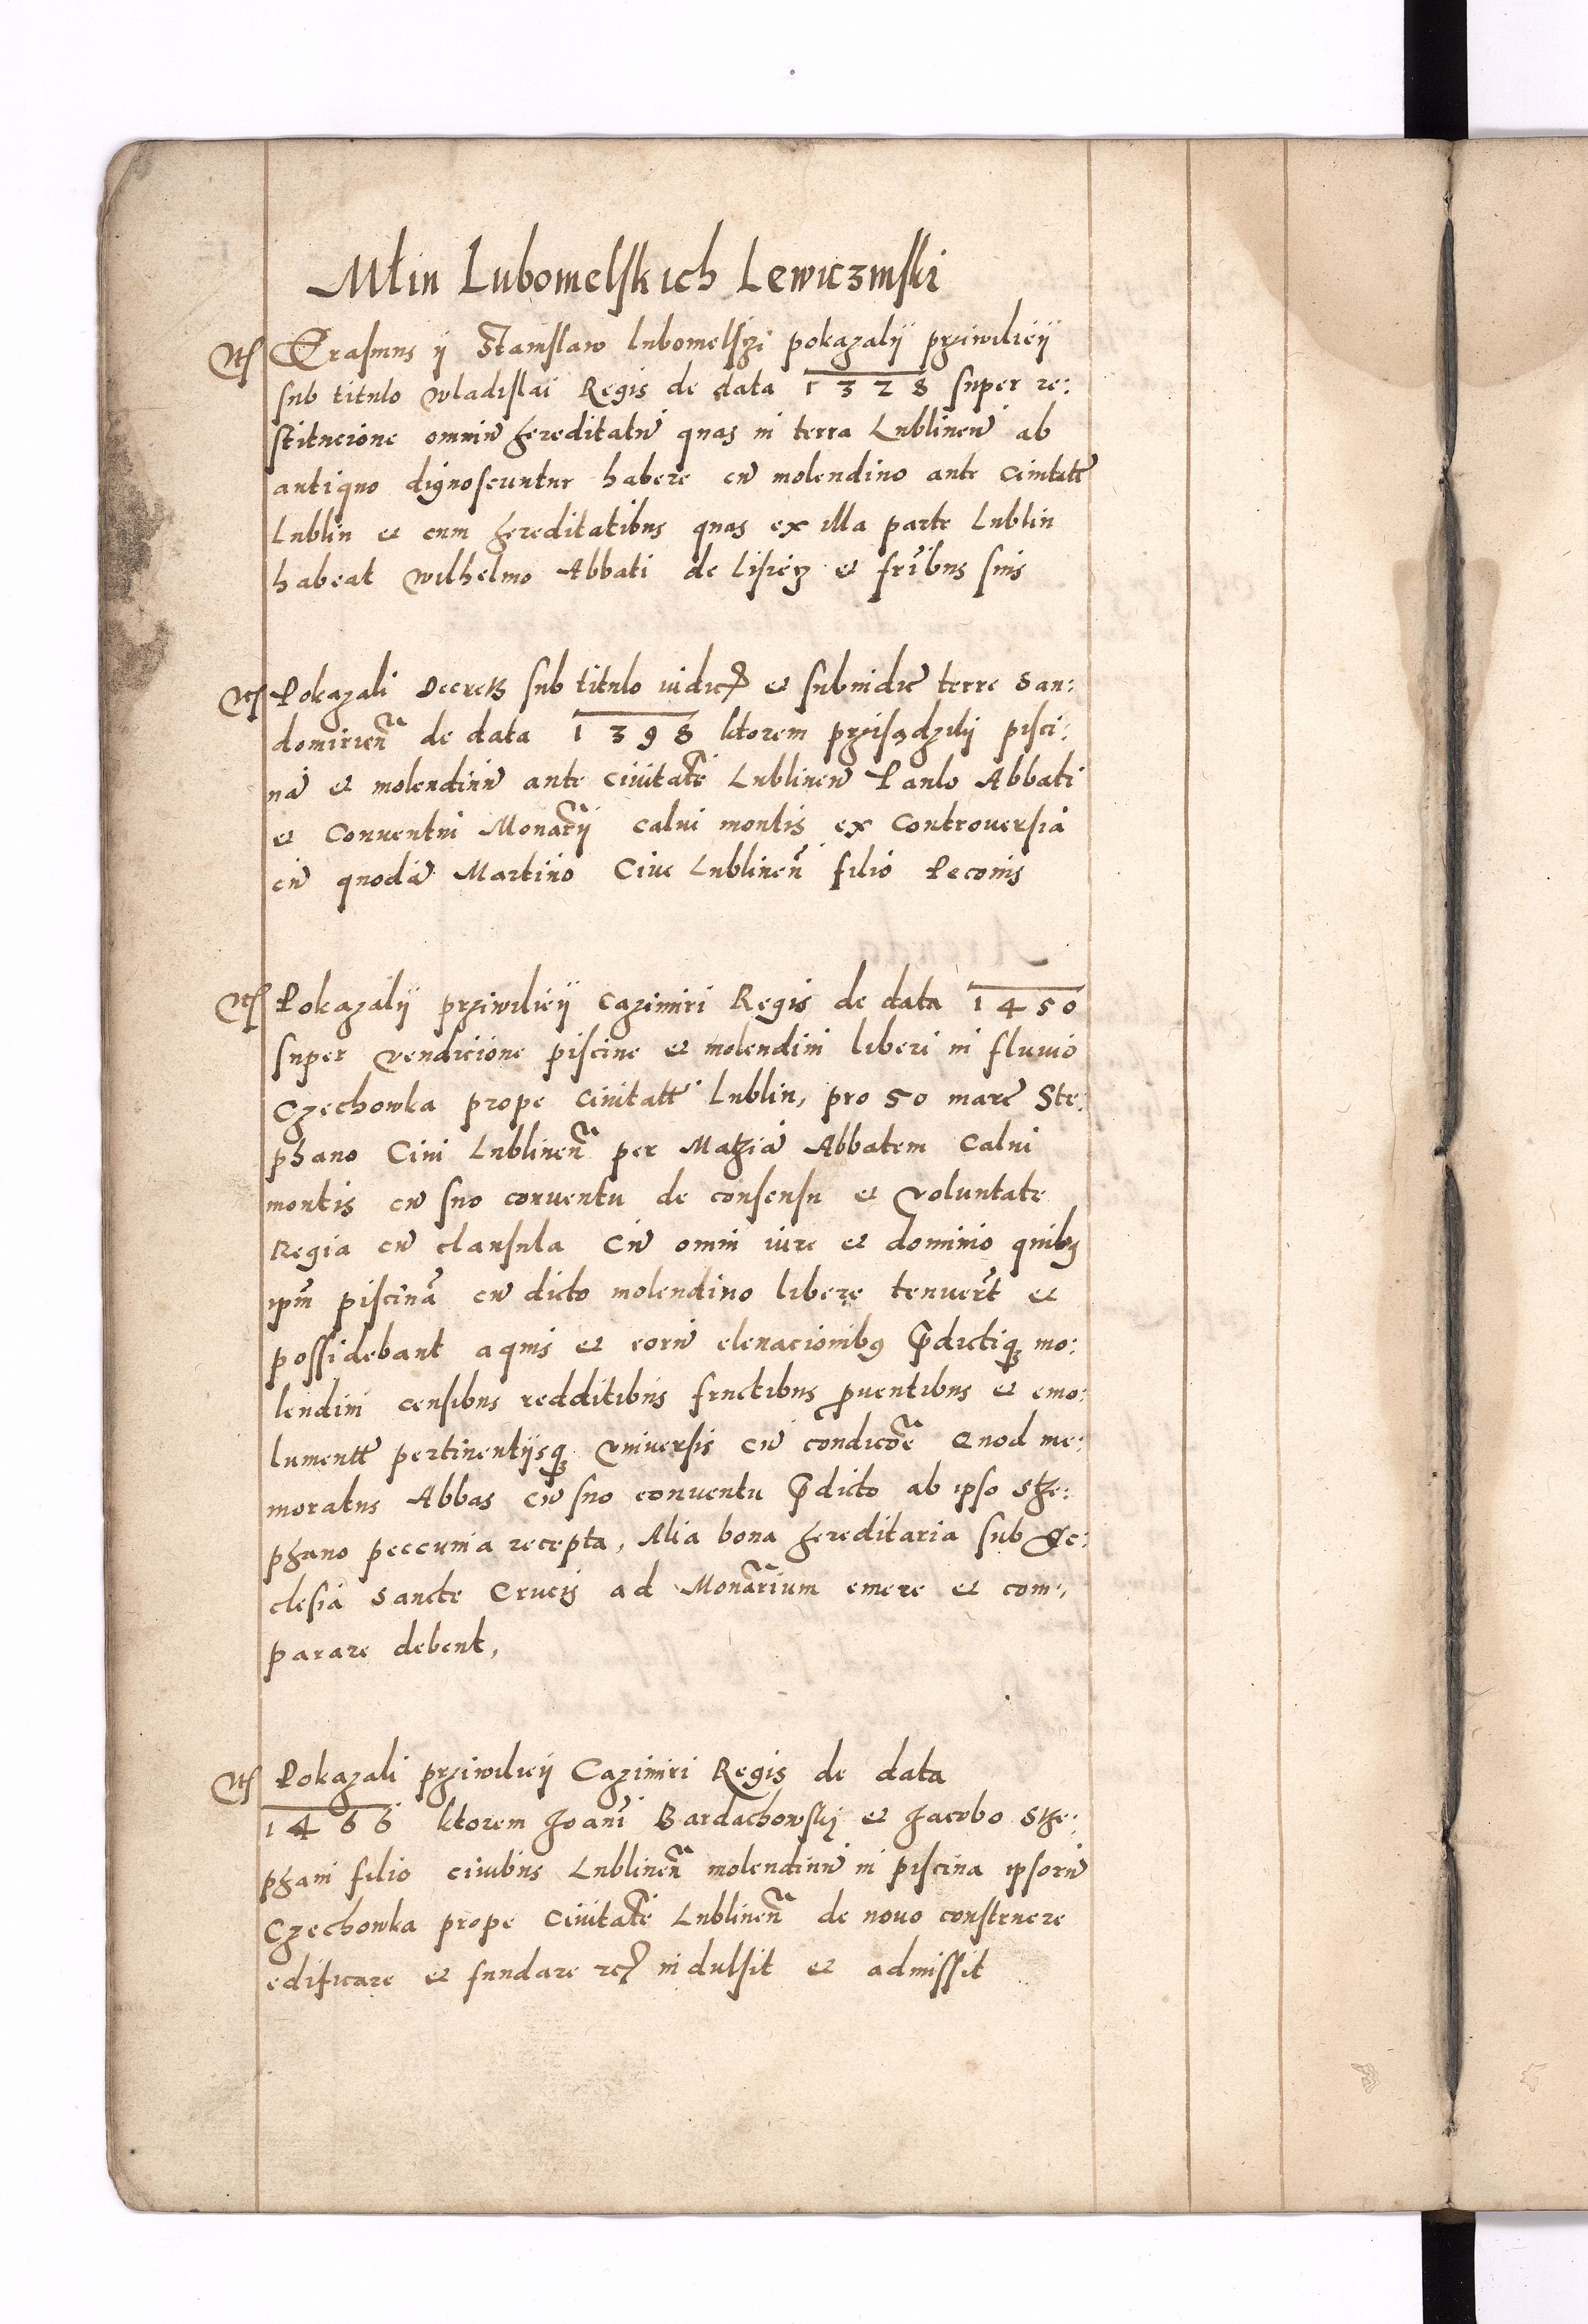 Młin Lubomelskich Lewiczinski
Itē Erasmus ÿ Stanislaw lubomelsczi pokazalÿ prziwilieÿ
sub titulo wladislai Regis de data 1328 super re:
stitucione omniū hereditatū quas in terra Lublineñ ab
antiquo dignoscuntur habere cū molendino ante Ciuitatē
Lublin et cum hereditatibus quas ex illa parte Lublin
habeat wilhelmo Abbati de lisiecz et fr̃ibus suis
Itē Pokazali Decret sub titulo iudic̃ et subiudic̃ terre San:
domirieñ de data 1398 ktorem przisądzilÿ pisci:
nā et molendinū ante ciuitatē Lublineñ Paulo Abbati
et Conuentui Monarÿ calui montis ex Controuersia
cū quodā Martino Ciue Lublineñ filio Peconis
Itē Pokazalÿ prziwilieÿ Cazimiri Regis de data 1450
super vendicione piscine et molendini liberi in fluuio
Czechowka prope ciuitatē Lublin, pro 50 marc̃ Ste:
phano Ciui Lublineñ per Mathiā Abbatem Calui
montis cū suo conuentu de consensu et voluntate
Regia cū clausula Cū omni iure et dominio quibus
ipm̃ piscinā cū dicto molendino libere tenuer̃t et
possidebant aquis et eorū eleuacionibus p̃dictiq mo:
lendini censibus redditibus fructibus prouentibus et emo:
lumentē pertinentijsq vniuersis cū condicōe Quod me:
moratus Abbas cū suo conuentu p̃dicto ab ipso Sthe:
phano peccunia recepta, Alia bona hereditaria sub Ec:
clesia Sancte Crucis ad Monarium emere et com:
parare debent,
Itē Pokazali prziwilieÿ Cazimiri Regis de data
1466 ktorem Joanī Bardachowskj et Jacobo Sthe:
phani filio ciuibus Lublineñ molendinū in piscina ipsorū
Czechowka prope Ciuitatē Lublineñ de nouo construere
edificare et fundare etc̃ indulsit et admissit